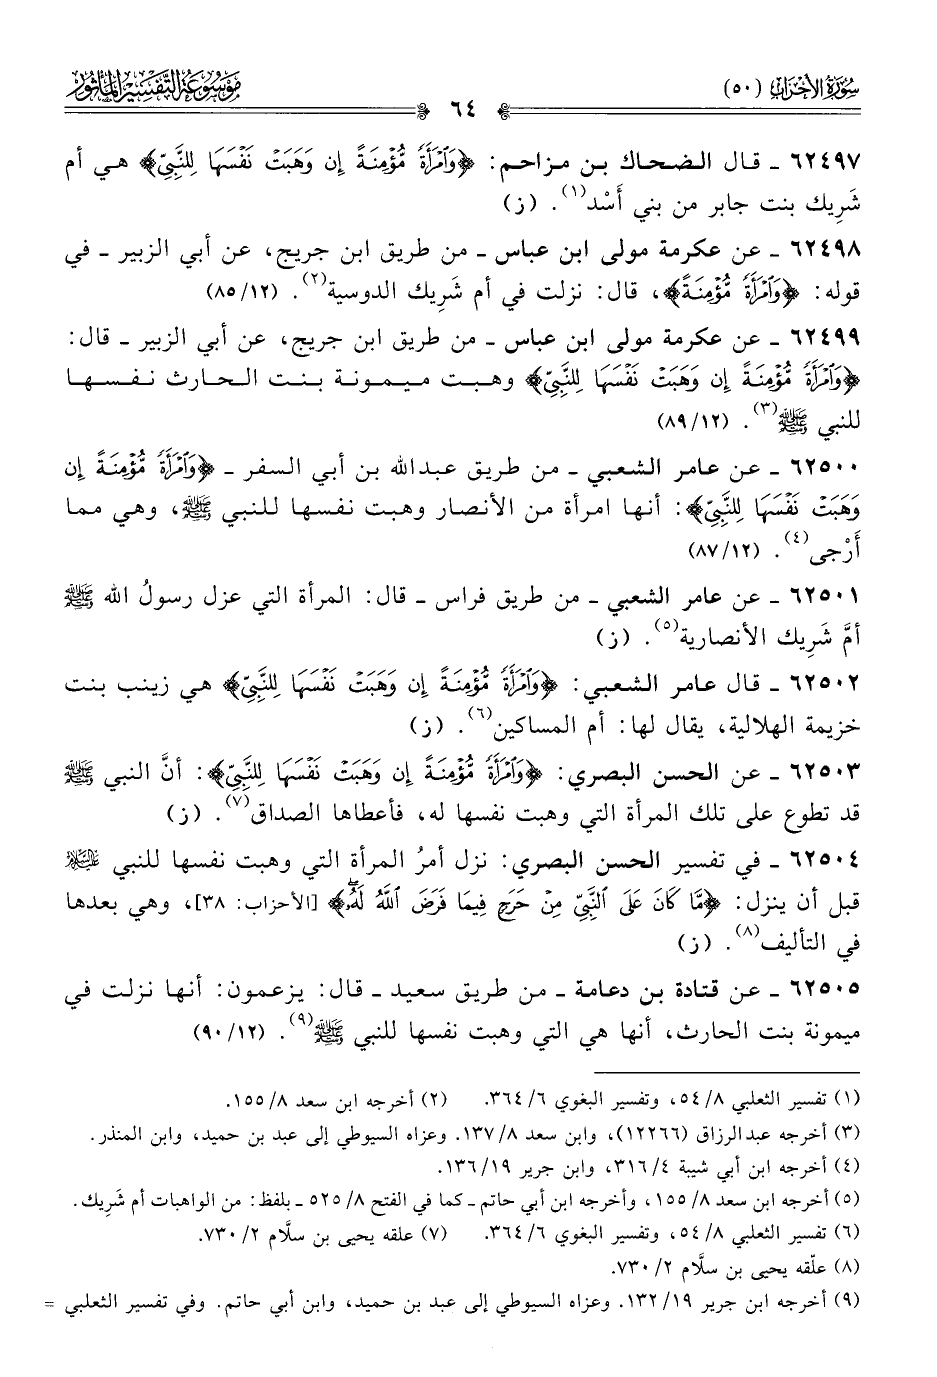 سُورَةُ الأَحْزَابِ (٥٠)
٦٤
مَوْسُوعَةُ التَّفْسِيرِ المَأْثُورِ
٦٢٤٩٧ ـ قال الضحاك بن مزاحم: ﴿وَٱمْرَأَةً مُّؤْمِنَةً إِن وَهَبَتْ نَفْسَهَا لِلنَّبِيِّ﴾ هي أم
شَرِيك بنت جابر من بني أَسْد(١). (ز)
٦٢٤٩٨ ـ عن عكرمة مولى ابن عباس ـ من طريق ابن جريج، عن أبي الزبير ـ في
قوله: ﴿وَٱمْرَأَةً مُّؤْمِنَةً﴾، قال: نزلت في أم شَرِيك الدوسية(٢). (١٢/ ٨٥)
٦٢٤٩٩ ـ عن عكرمة مولى ابن عباس ـ من طريق ابن جريج، عن أبي الزبير ـ قال:
﴿وَٱمْرَأَةً مُّؤْمِنَةً إِن وَهَبَتْ نَفْسَهَا لِلنَّبِيِّ﴾ وهبت ميمونة بنت الحارث نفسها
للنبي ﷺ(٣). (١٢/ ٨٩)
٦٢٥٠٠ ـ عن عامر الشعبي ـ من طريق عبدالله بن أبي السفر ـ ﴿وَٱمْرَأَةً مُّؤْمِنَةً إِن
وَهَبَتْ نَفْسَهَا لِلنَّبِيِّ﴾: أنها امرأة من الأنصار وهبت نفسها للنبي ﷺ، وهي مما
أَرْجى(٤). (١٢/ ٨٧)
٦٢٥٠١ ـ عن عامر الشعبي ـ من طريق فراس ـ قال: المرأة التي عزل رسولُ الله ﷺ
أمَّ شَرِيك الأنصارية(٥). (ز)
٦٢٥٠٢ ـ قال عامر الشعبي: ﴿وَٱمْرَأَةً مُّؤْمِنَةً إِن وَهَبَتْ نَفْسَهَا لِلنَّبِيِّ﴾ هي زينب بنت
خزيمة الهلالية، يقال لها: أم المساكين(٦). (ز)
٦٢٥٠٣ ـ عن الحسن البصري: ﴿وَٱمْرَأَةً مُّؤْمِنَةً إِن وَهَبَتْ نَفْسَهَا لِلنَّبِيِّ﴾: أنَّ النبي ﷺ
قد تطوع على تلك المرأة التي وهبت نفسها له، فأعطاها الصداق(٧). (ز)
٦٢٥٠٤ ـ في تفسير الحسن البصري: نزل أمرُ المرأة التي وهبت نفسها للنبي ﵇
قبل أن ينزل: ﴿مَّا كَانَ عَلَى ٱلنَّبِيِّ مِنْ حَرَجٍ فِيمَا فَرَضَ ٱللَّهُ لَهُۥۖ﴾ [الأحزاب: ٣٨]، وهي بعدها
في التأليف(٨). (ز)
٦٢٥٠٥ ـ عن قتادة بن دعامة ـ من طريق سعيد ـ قال: يزعمون: أنها نزلت في
ميمونة بنت الحارث، أنها هي التي وهبت نفسها للنبي ﷺ(٩). (١٢/ ٩٠)
(١) تفسير الثعلبي ٨/ ٥٤، وتفسير البغوي ٦/ ٣٦٤. (٢) أخرجه ابن سعد ٨/ ١٥٥.
(٣) أخرجه عبدالرزاق (١٢٢٦٦)، وابن سعد ٨/ ١٣٧. وعزاه السيوطي إلى عبد بن حميد، وابن المنذر.
(٤) أخرجه ابن أبي شيبة ٤/ ٣١٦، وابن جرير ١٩/ ١٣٦.
(٥) أخرجه ابن سعد ٨/ ١٥٥، وأخرجه ابن أبي حاتم ـ كما في الفتح ٨/ ٥٢٥ ـ بلفظ: من الواهبات أم شَرِيك.
(٦) تفسير الثعلبي ٨/ ٥٤، وتفسير البغوي ٦/ ٣٦٤. (٧) علقه يحيى بن سلَّام ٢/ ٧٣٠.
(٨) علّقه يحيى بن سلَّام ٢/ ٧٣٠.
(٩) أخرجه ابن جرير ١٩/ ١٣٢. وعزاه السيوطي إلى عبد بن حميد، وابن أبي حاتم. وفي تفسير الثعلبي =